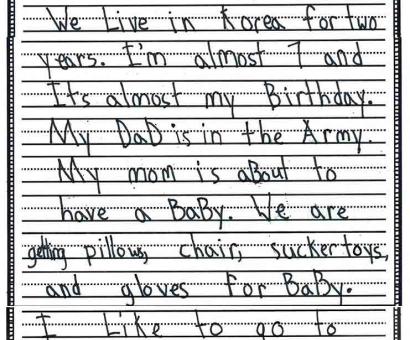 We Live in Korea for two
years. I'm almost 7 and
It's almost my Birthday.
My DaD is in the Army.
My mom is aBout to
have a BaBy. We are
getting pillows, chair, sucker toys,
and gloves for BaBy.
I Like to go to